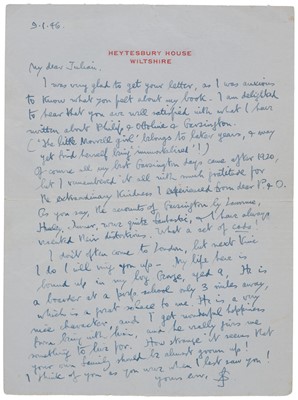 9.1.46.
HEYTESBURY HOUSE
WILTSHIRE
My dear Julian.
I was very glad to get your letter, as I was anxious
to know what you felt about my book. I am delighted
to hear that you are well satisfied with what I have
written about Philip & Ottoline & Garsington.
('The little Morrell girl' belongs to later years, & may
yet find herself being 'immortalised'!)
Of course all my best Garsington days came after 1920,
but I remembered it all with much gratitude for
the extraordinary kindness I experienced from dear P & O.
As you say, the accounts of Garsington by Lawrence,
Huxley, were quite fantastic, & I have always
resented their distortions. What a set of cads!
I don't often come to London, but next time
I do I will ring you up – My life here is
bound up in my boy George, aged 9. He is
a boarder at a prep. school only 3 miles away,
which is a great solace to me. He is a very
nice character, and I get wonderful happiness
from being with him, and he really gives me
something to live for. How strange it seems that
your own family should be almost grown up!
I think of you as you were when I last saw you!
yours ever,